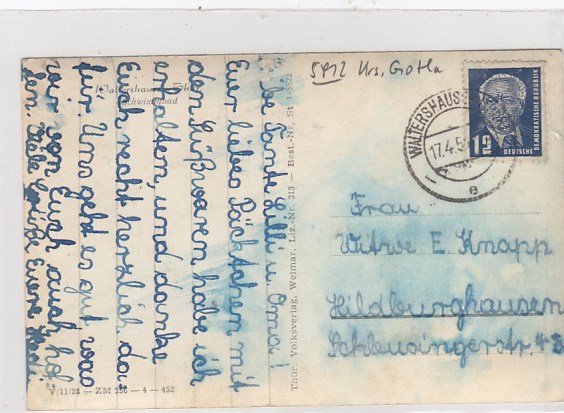 5912 Krs. Gotha
WALTERSHAUSEN
17.4.5
e
12
DEUTSCHE
DEMOKRATISCHE REPUBLIK
Waltershausen
Schwimmbad
Liebe Tante Lilli u. Oma!
Euer liebes Päckchen mit
den Süßwaren habe ich
erhalten, und danke
Euch recht herzlich da-
für. Uns geht es gut was
wir von Euch auch hof-
fen. Viele Grüße Eure
Thür. Volksverlag, Weimar, Liz.-Nr. 313 — Best.-Nr. St
V/11/28 — ZM 256 — 4 — 452
Frau
Witwe E. Knapp
Hildburghausen
Schleusingerstr. 43